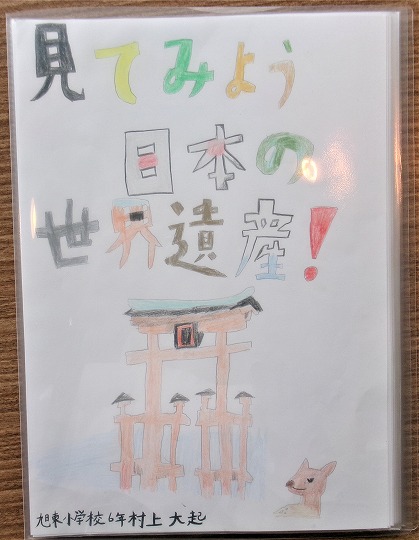 見てみよう
日本の
世界遺産！
旭東小学校6年村上大起